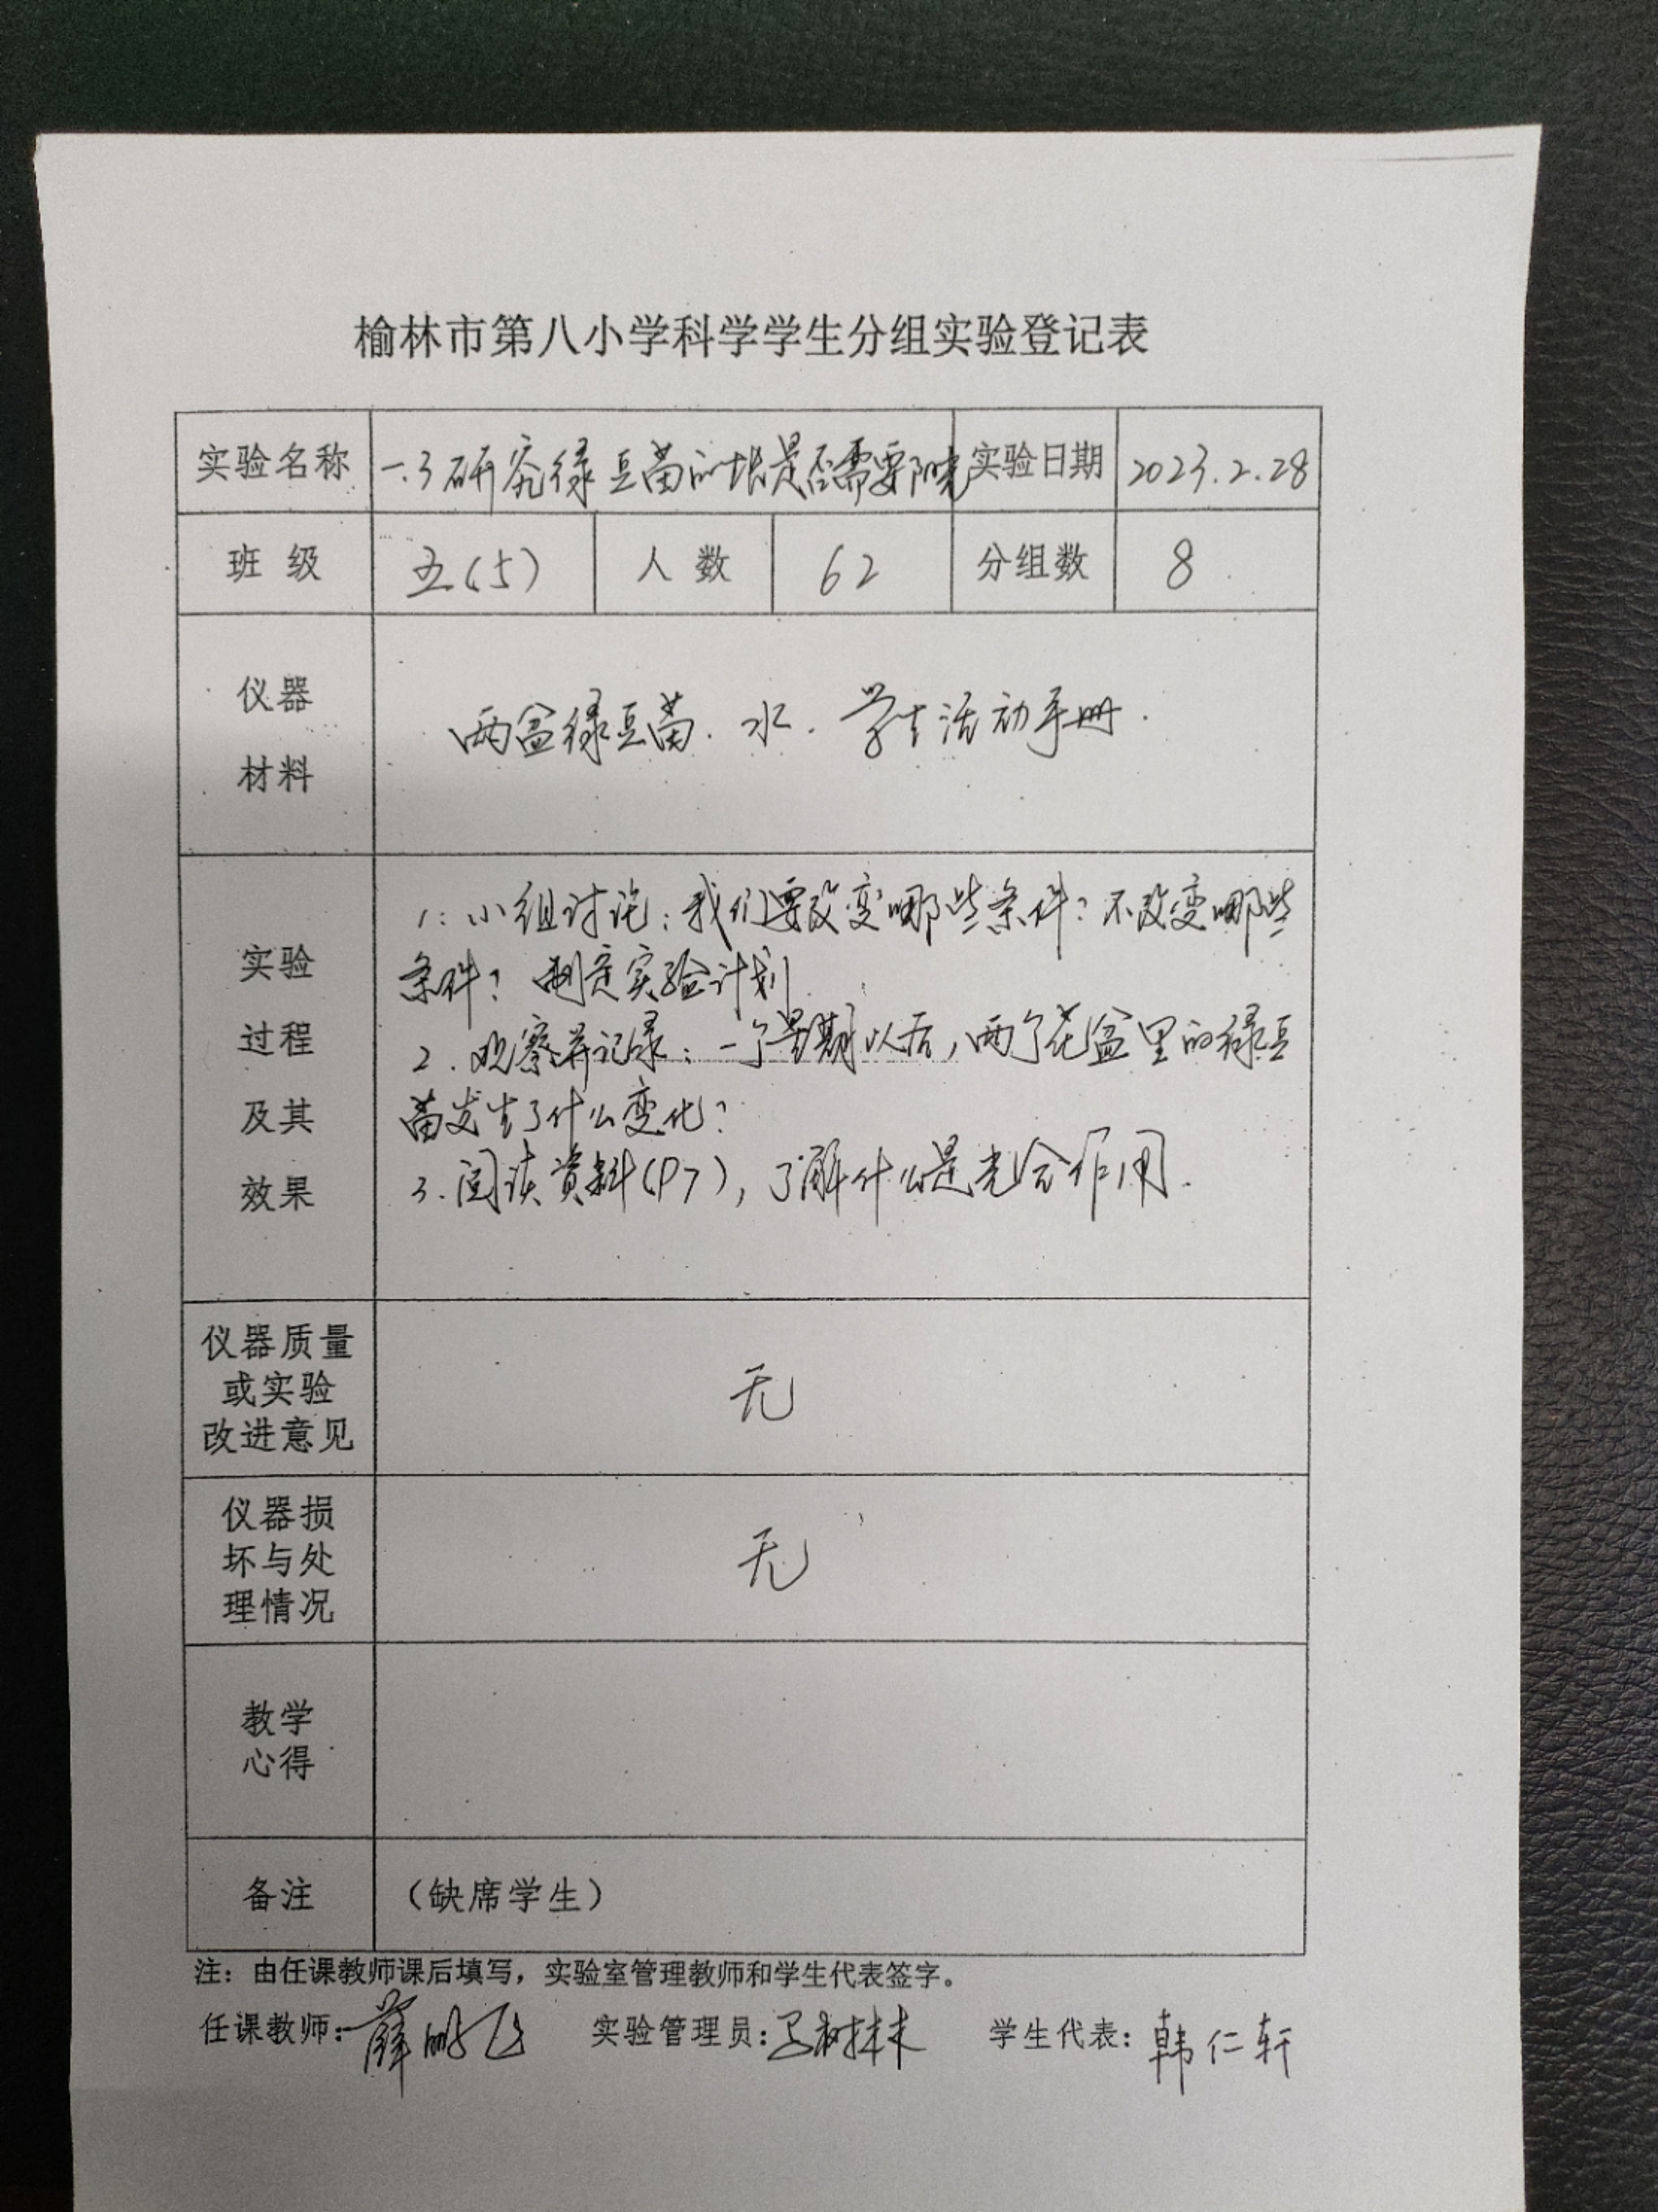 榆林市第八小学科学学生分组实验登记表
实验名称 一.3研究绿豆苗的生长是否需要阳光 实验日期 2023.2.28
班 级 五(5) 人 数 62 分组数 8
仪器
材料
两盆绿豆苗、水、学生活动手册.
实验
过程
及其
效果
1: 小组讨论:我们要改变哪些条件?不改变哪些
条件?制定实验计划
2.观察并记录:一个星期以后,两个花盆里的绿豆
苗发生了什么变化?
3.阅读资料(P7),了解什么是光合作用.
仪器质量
或实验
改进意见
无
仪器损
坏与处
理情况
无
教学
心得
备注 (缺席学生)
注:由任课教师课后填写,实验室管理教师和学生代表签字。
任课教师:薛鹏飞 实验管理员: 学生代表:韩仁轩